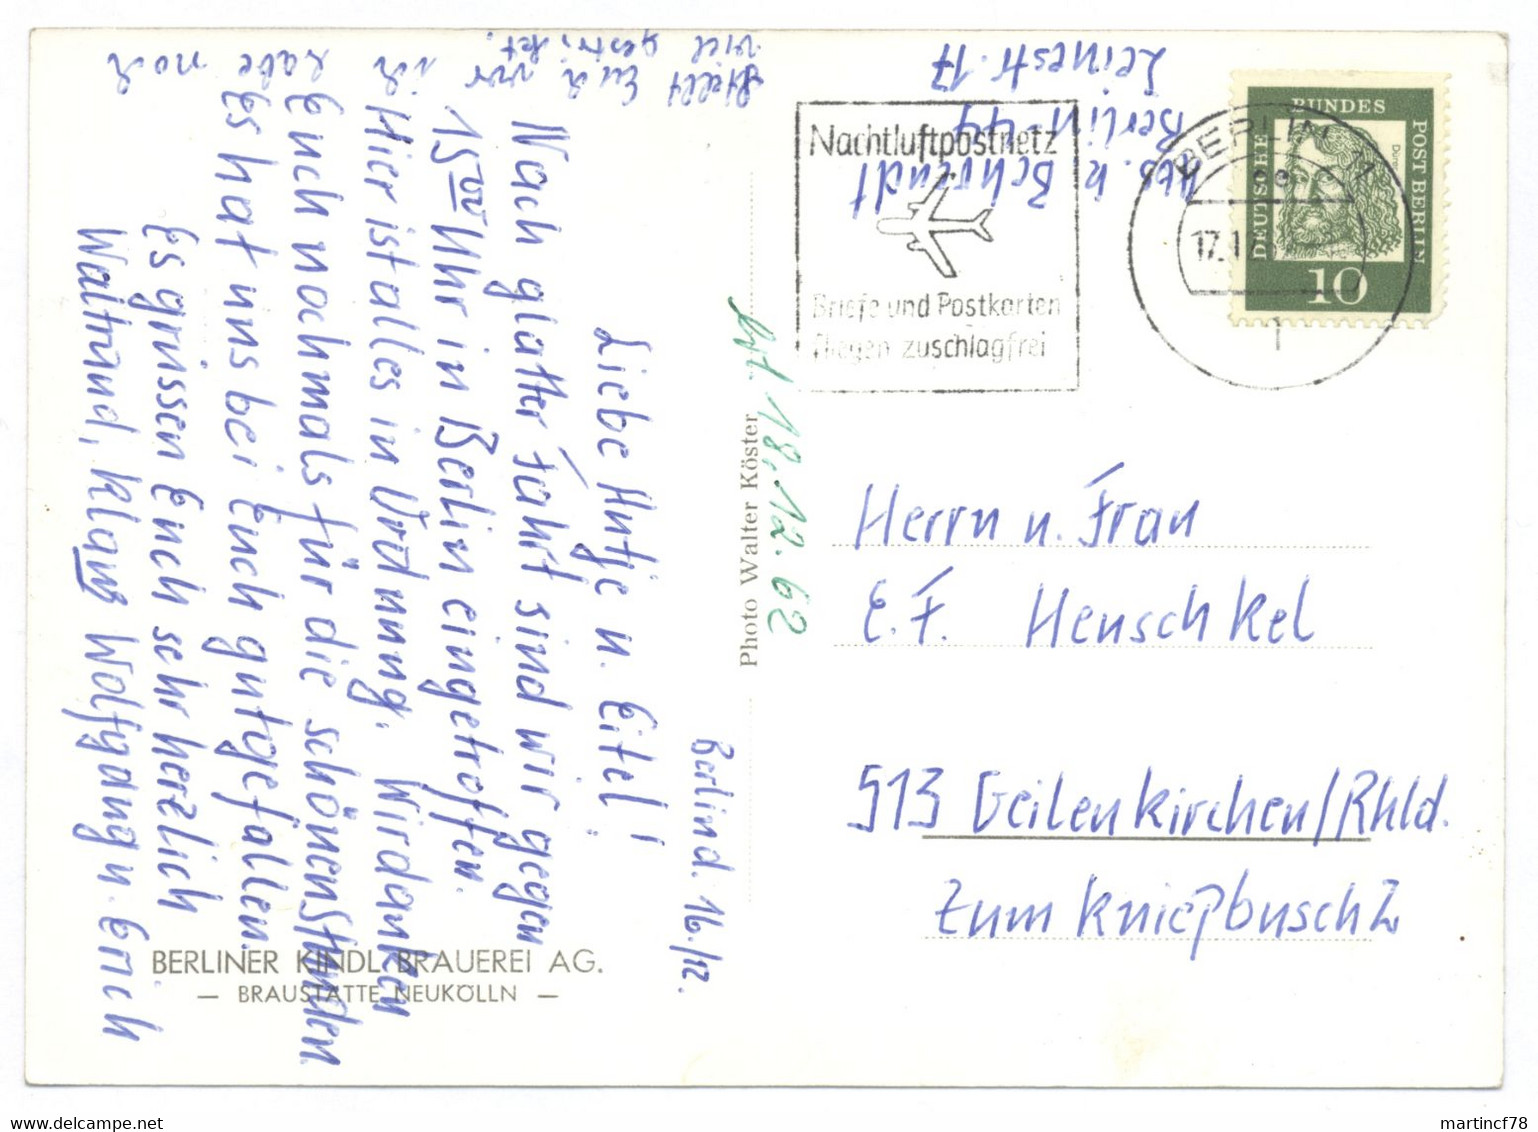 Berlin d. 16./12.
Liebe Hutje u. Eitel!
Nach glatter Fahrt sind wir gegen
15 00 Uhr in Berlin eingetroffen.
Hier ist alles in Ordnung. Wir danken
Euch nochmals für die schönen Stunden
Es hat uns bei Euch gut gefallen.
Es grüssen Euch sehr herzlich
Waltraud, Klaus Wolfgang u. Erich
Stellt Euch vor ich habe noch
viel gestrikt.
Abs. K Behrendt
Berlin 44
Leinestr. 17
Nachtluftpostnetz
Briefe und Postkarten
fliegen zuschlagfrei
BERLIN 11
17.12
1
DEUTSCHE BUNDES POST BERLIN
Dürer
10
18.12.62
Photo Walter Köster
Herrn u. Frau
E. F. Henschkel
513 Geilenkirchen/Rhld.
Zum Kniepbusch 2
BERLINER KINDL BRAUEREI AG.
— BRAUSTÄTTE NEUKÖLLN —
martincf78